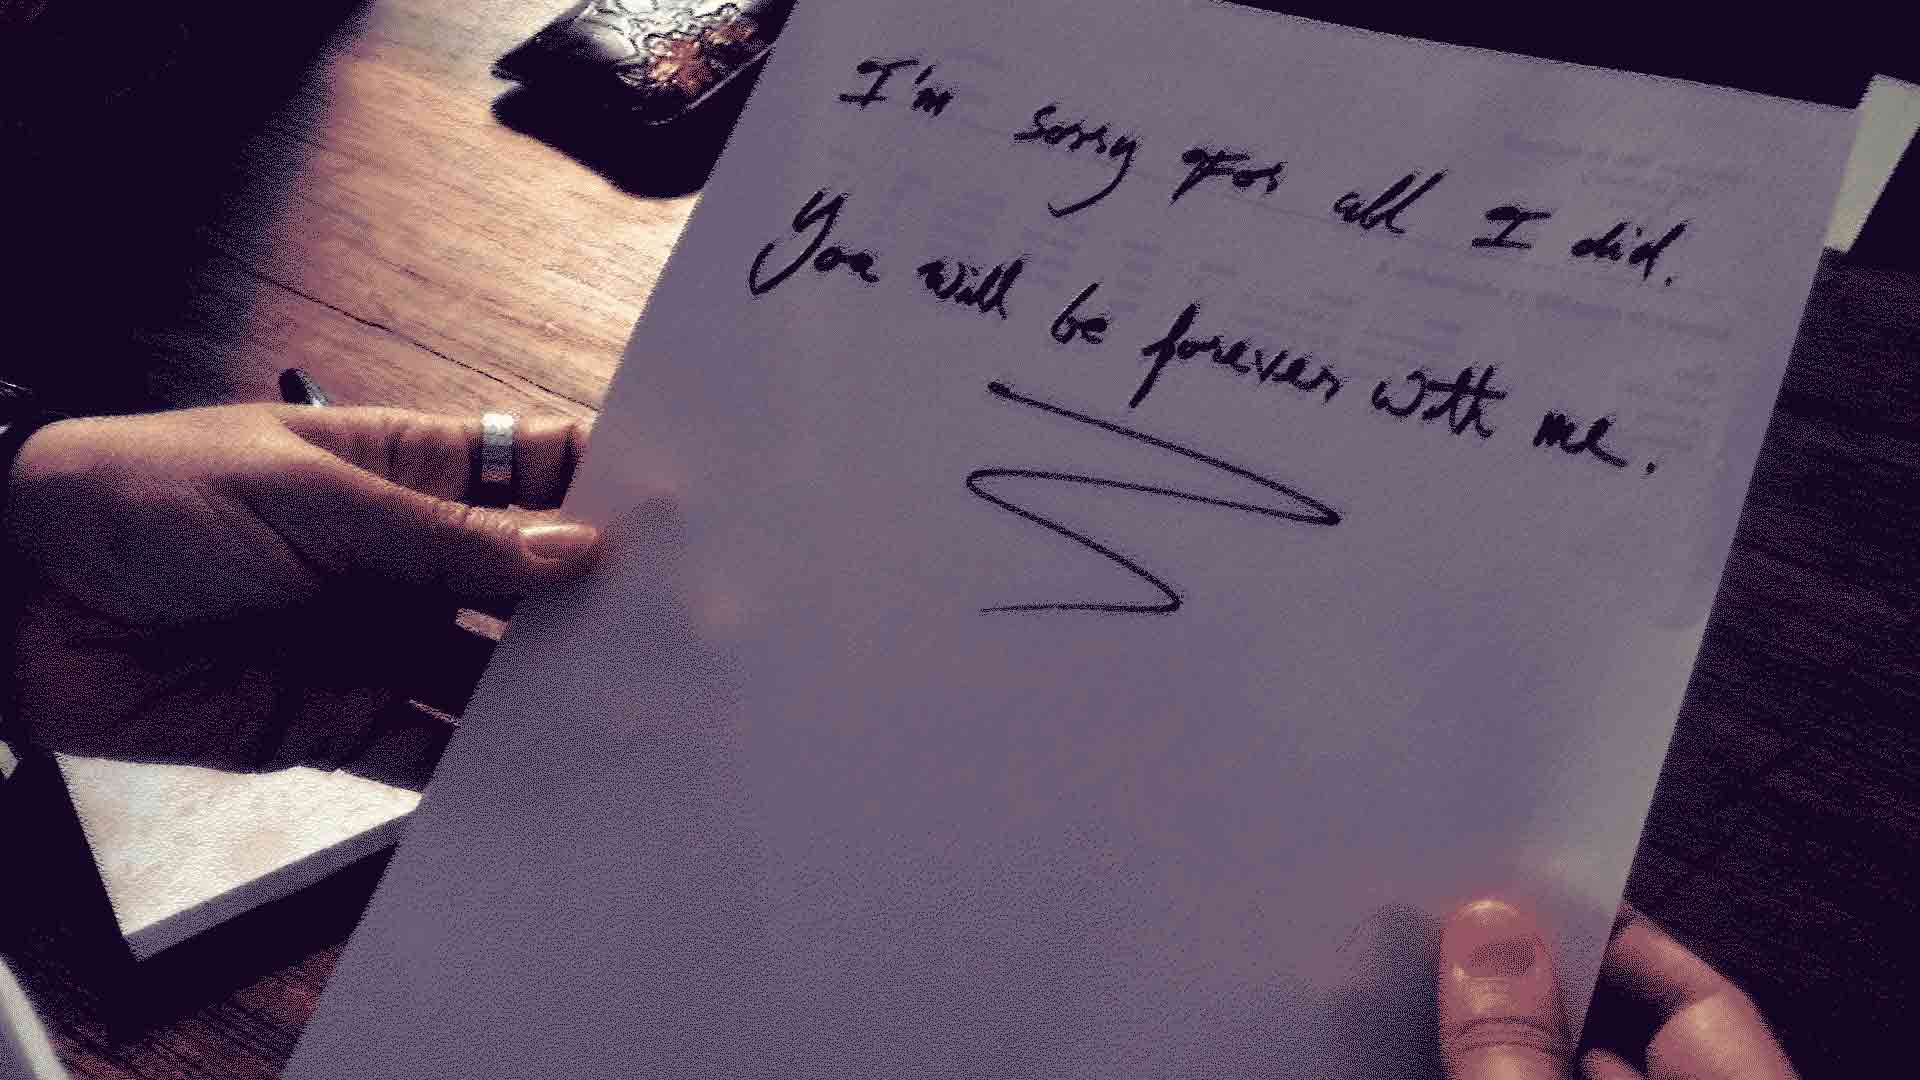 I'm sorry For all I did.
You will be forever with me.